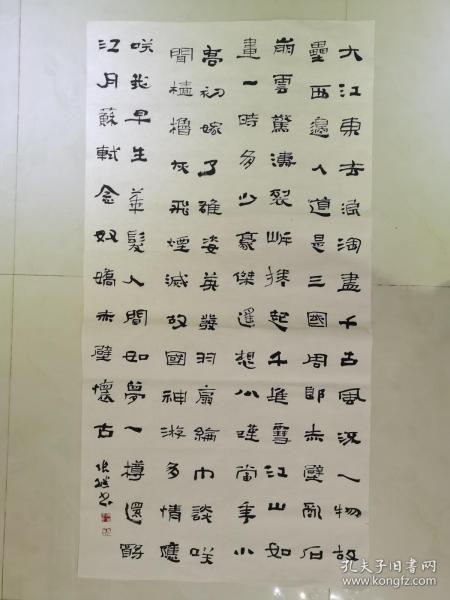 大江東去浪淘盡千古風流人物故
壘西邊人道是三國周郎赤壁亂石
崩雲驚濤裂岸捲起千堆雪江山如
畫一時多少豪傑遙想公瑾當年小
喬初嫁了雄姿英發羽扇綸巾談咲
間檣櫓灰飛煙滅故國神游多情應
咲我早生華髮人間如夢一樽還酹
江月蘇軾念奴嬌赤壁懷古
孔夫子旧书网
www.kongfz.com